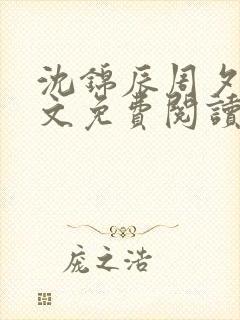 沈錦辰周夕
文免費閱讀
庞之浩